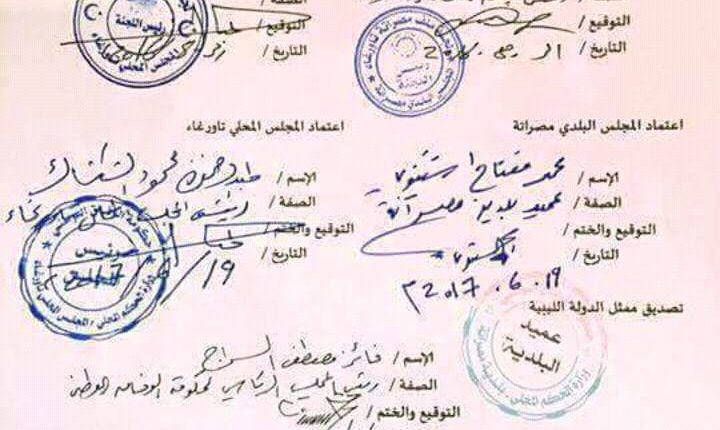 التوقيع /
التاريخ /
التوقيع /
التاريخ /
رئيس اللجنة
المجلس المحلي تاورغاء
اعتماد المجلس البلدي مصراتة
الإسم / محمد مفتاح اشتيوي
الصفة / عميد بلدية مصراتة
التوقيع والختم /
التاريخ /
19 . 6 . 2017 م
عميد البلدية
اعتماد المجلس المحلي تاورغاء
الإسم / عبدالرحمن محمود الشكشاك
الصفة / رئيس المجلس المحلي تاورغاء
التوقيع والختم /
التاريخ / 19 / 6 / 2017
رئيس
وزارة الحكم المحلي . المجلس المحلي تاورغاء
تصديق ممثل الدولة الليبية
الإسم / فائز مصطفى السراج
الصفة / رئيس المجلس الرئاسي لحكومة الوفاق الوطني
التوقيع والختم /